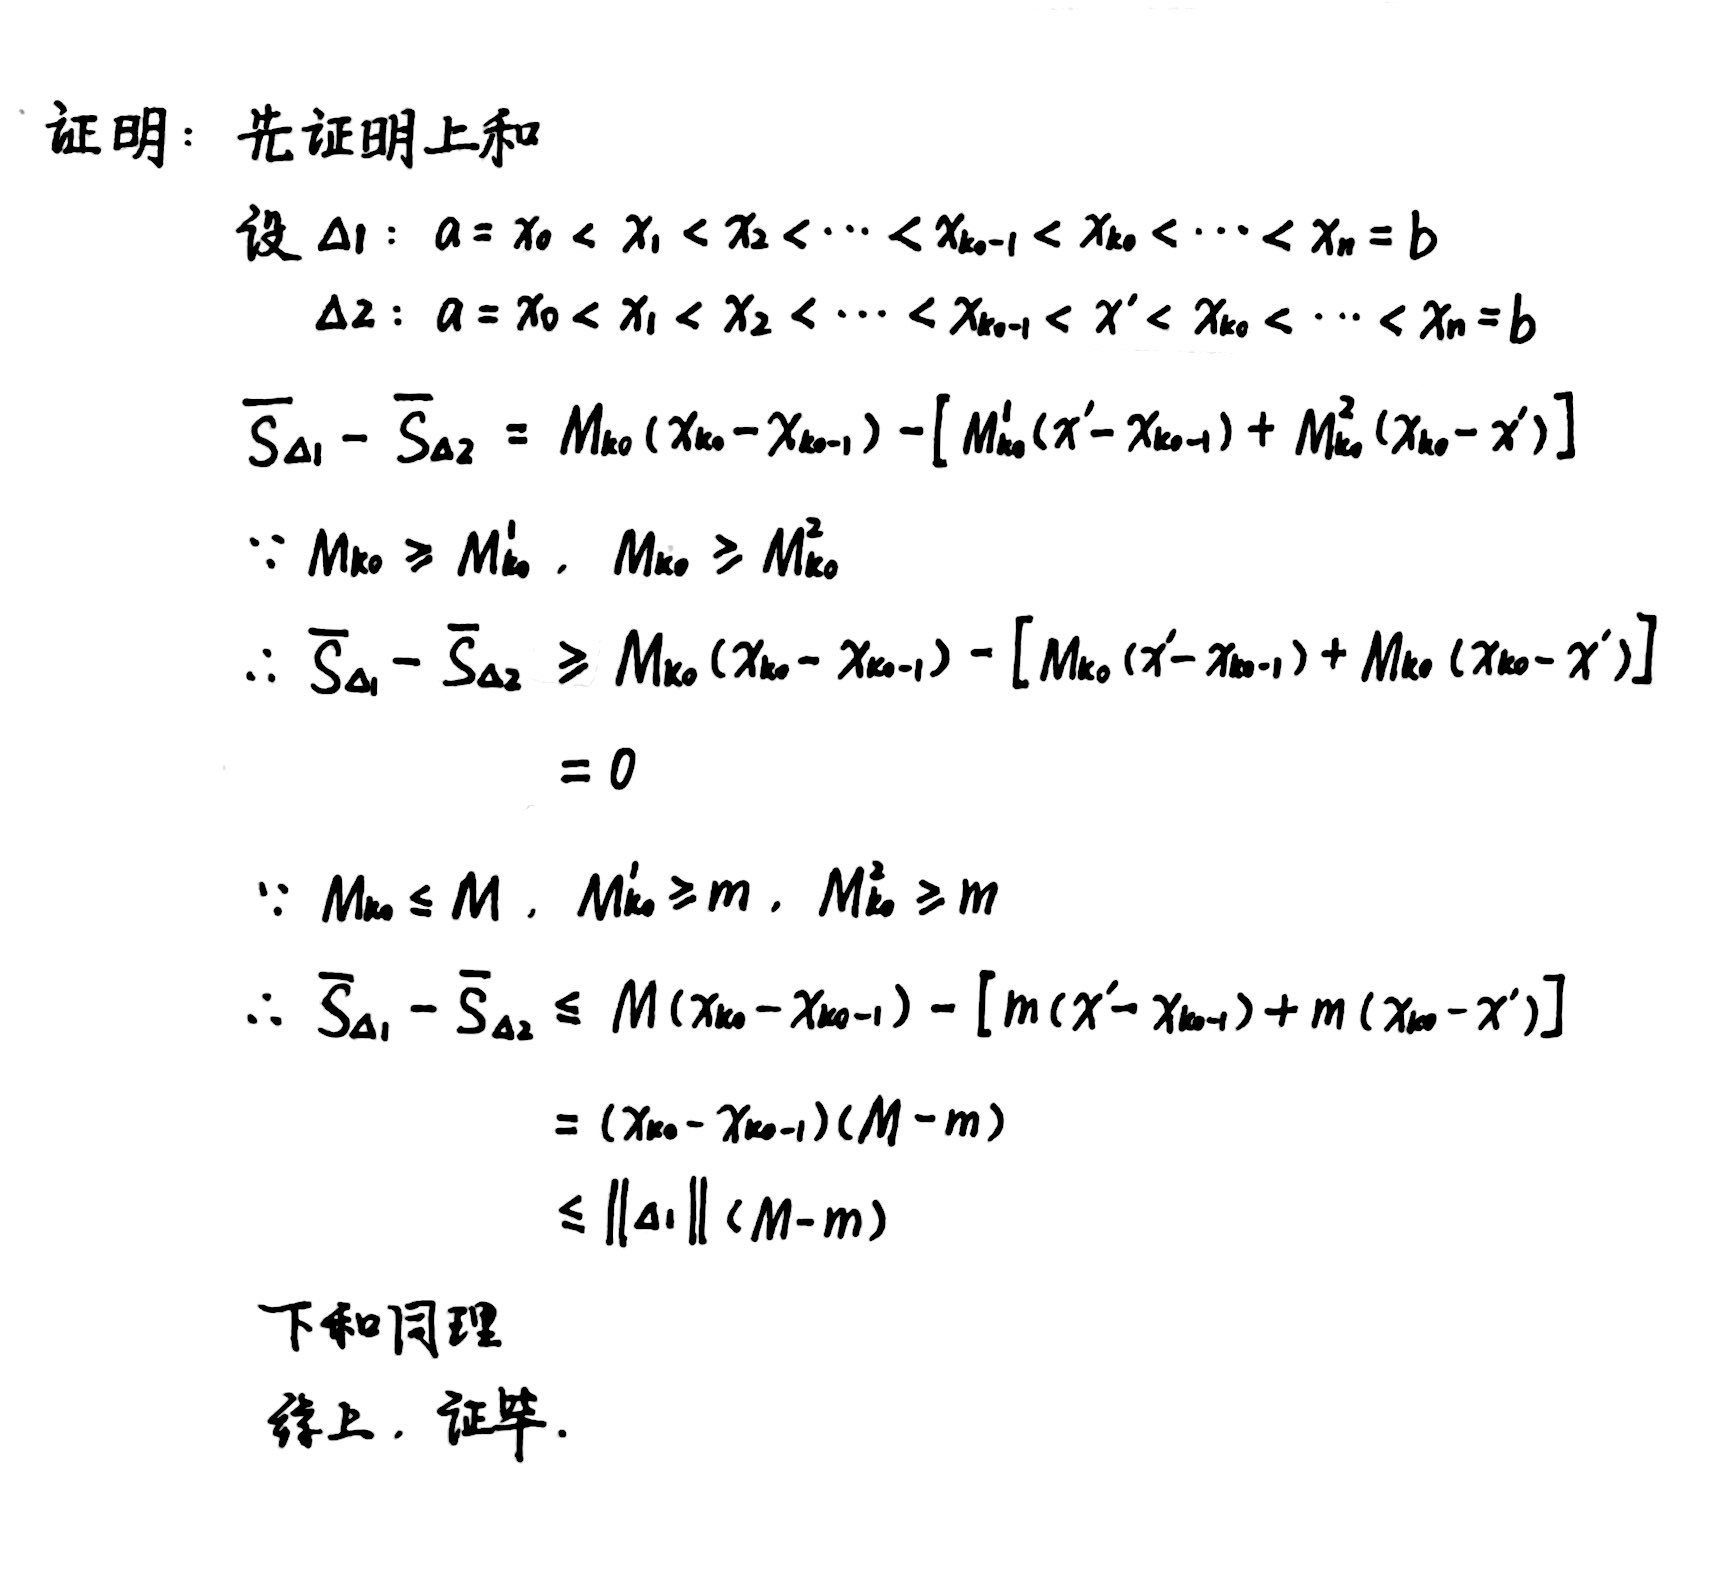 证明: 先证明上和
设 Δ1: a = x₀ < x₁ < x₂ < ⋯ < x_{k₀-1} < x_{k₀} < ⋯ < x_n = b
Δ2: a = x₀ < x₁ < x₂ < ⋯ < x_{k₀-1} < x′ < x_{k₀} < ⋯ < x_n = b
S̅_{Δ1} − S̅_{Δ2} = M_{k₀}(x_{k₀} − x_{k₀-1}) − [M¹_{k₀}(x′ − x_{k₀-1}) + M²_{k₀}(x_{k₀} − x′)]
∵ M_{k₀} ≥ M¹_{k₀}, M_{k₀} ≥ M²_{k₀}
∴ S̅_{Δ1} − S̅_{Δ2} ≥ M_{k₀}(x_{k₀} − x_{k₀-1}) − [M_{k₀}(x′ − x_{k₀-1}) + M_{k₀}(x_{k₀} − x′)]
= 0
∵ M_{k₀} ≤ M, M¹_{k₀} ≥ m, M²_{k₀} ≥ m
∴ S̅_{Δ1} − S̅_{Δ2} ≤ M(x_{k₀} − x_{k₀-1}) − [m(x′ − x_{k₀-1}) + m(x_{k₀} − x′)]
= (x_{k₀} − x_{k₀-1})(M − m)
≤ ‖Δ1‖(M − m)
下和同理
综上, 证毕.